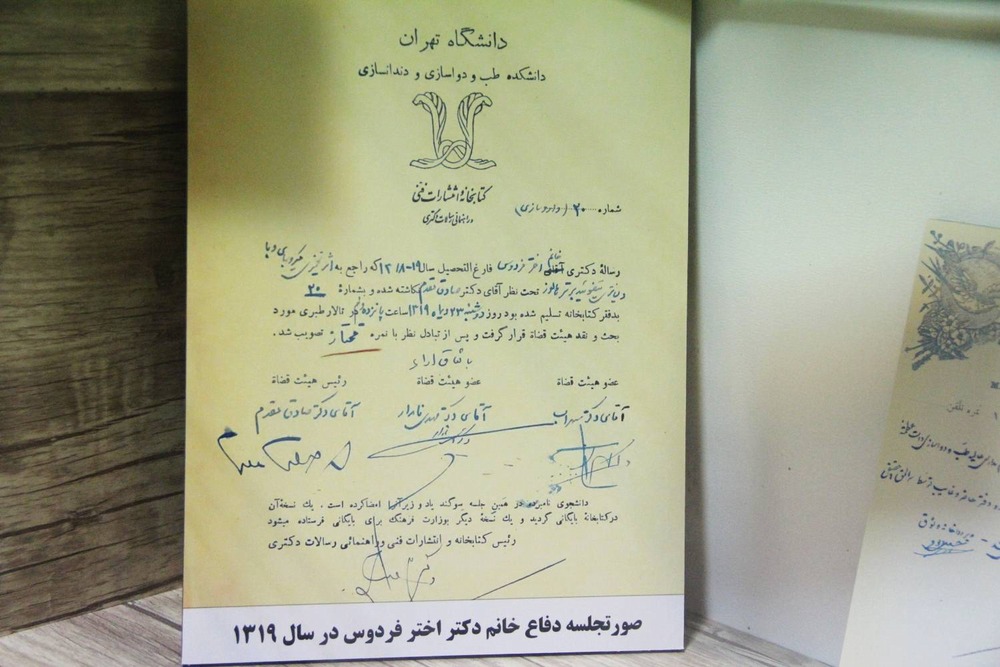 دانشگاه تهران
دانشکده طب و دواسازی و دندانسازی
کتابخانه و انتشارات فنی
و راهنمائی رسالات دکتری
شماره ۲۰ (داروسازی)
رسالهٔ دکتری آقای خانم اختر فردوس فارغ التحصیل سال ۱۹-۱۳۱۸ که راجع به اثر
تحت نظر آقای دکتر صادق مقدم نگاشته شده و بشماره: ۲۰
بدفتر کتابخانه تسلیم شده بود روز دوشنبه ۲۳ دیماه ۱۳۱۹ ساعت پانزده در تالار طبری مورد
بحث و نقد هیئت قضاة قرار گرفت و پس از تبادل نظر با نمره ممتاز تصویب شد.
باتفاق آراء
عضو هیئت قضاة عضو هیئت قضاة رئیس هیئت قضاة
آقای دکتر سهراب آقای دکتر مهدی نامدار آقای دکتر صادق مقدم
دانشجوی نامبرده در همین جلسه سوگند یاد و زیر آنرا امضا کرده است. یك نسخه آن
در کتابخانه بایگانی گردید و یك نسخه دیگر بوزارت فرهنگ برای بایگانی فرستاده میشود
رئیس کتابخانه و انتشارات فنی و راهنمائی رسالات دکتری
صورتجلسه دفاع خانم دکتر اختر فردوس در سال ۱۳۱۹